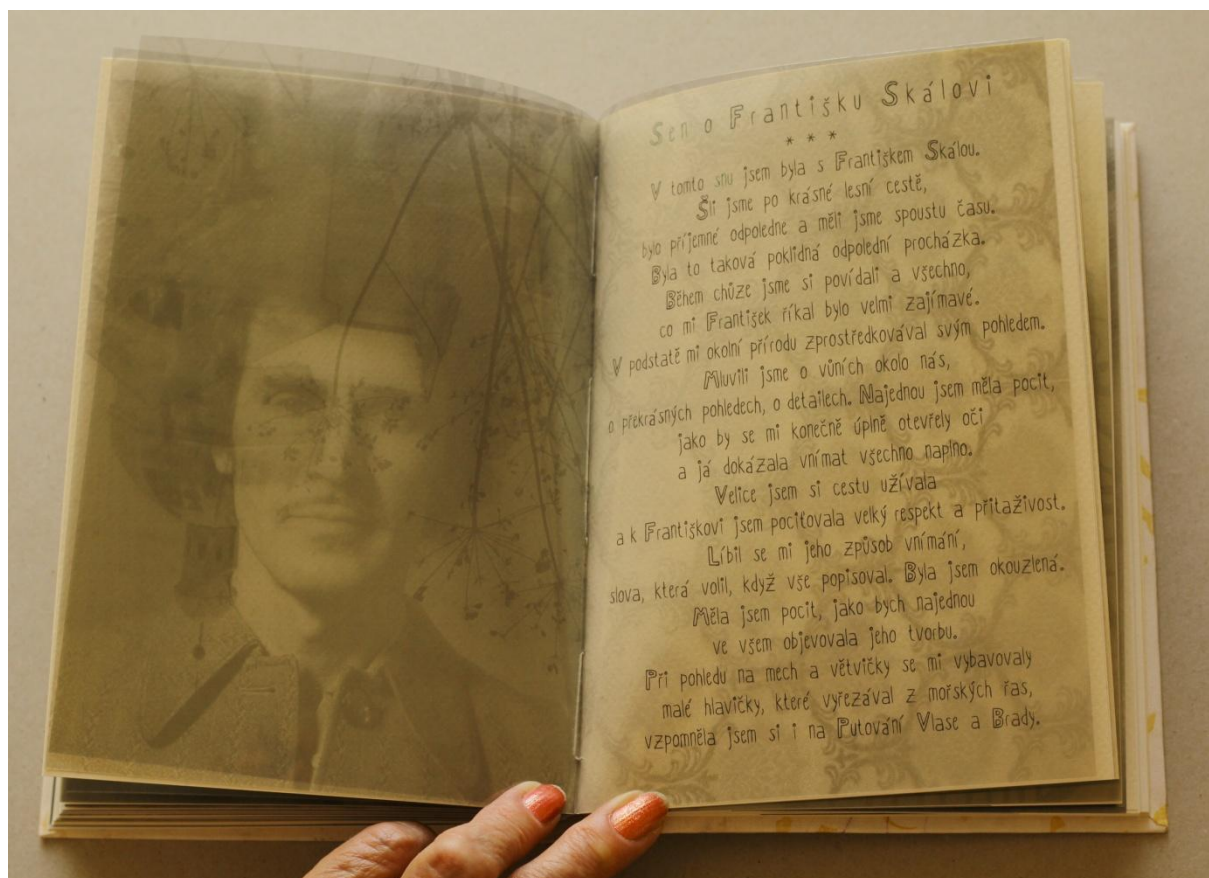 Sen o Františku Skálovi
* * *
V tomto snu jsem byla s Františkem Skálou.
Šli jsme po krásné lesní cestě,
bylo příjemné odpoledne a měli jsme spoustu času.
Byla to taková poklidná odpolední procházka.
Během chůze jsme si povídali a všechno,
co mi František říkal bylo velmi zajímavé.
V podstatě mi okolní přírodu zprostředkovával svým pohledem.
Mluvili jsme o vůních okolo nás,
o překrásných pohledech, o detailech. Najednou jsem měla pocit,
jako by se mi konečně úplně otevřely oči
a já dokázala vnímat všechno naplno.
Velice jsem si cestu užívala
a k Františkovi jsem pociťovala velký respekt a přitaživost.
Líbil se mi jeho způsob vnímání,
slova, která volil, když vše popisoval. Byla jsem okouzlená.
Měla jsem pocit, jako bych najednou
ve všem objevovala jeho tvorbu.
Při pohledu na mech a větvičky se mi vybavovaly
malé hlavičky, které vyřezával z mořských řas,
vzpomněla jsem si i na Putování Vlase a Brady.